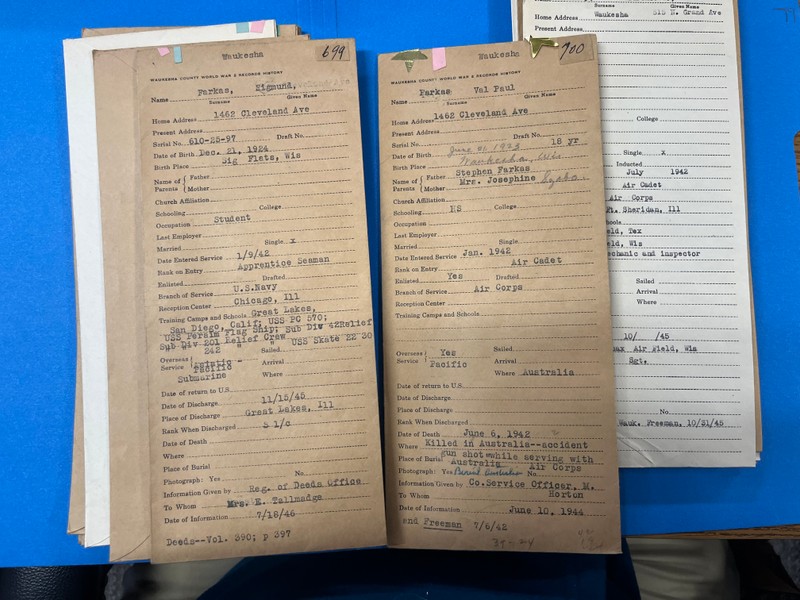 Waukesha
699
WAUKESHA COUNTY WORLD WAR 2 RECORDS HISTORY
Name Farkas, Sigmund,
Surname Given Name
Home Address 1462 Cleveland Ave
Present Address
Serial No. 610-25-97 Draft No.
Date of Birth Dec. 21, 1924
Birth Place Big Flats, Wis
Name of Parents { Father
Mother
Church Affiliation
Schooling College
Occupation Student
Last Employer
Married Single x
Date Entered Service 1/9/42
Rank on Entry Apprentice Seaman
Enlisted Drafted
Branch of Service U.S.Navy
Reception Center Chicago, Ill
Training Camps and Schools Great Lakes,
San Diego, Calif; USS PC 570;
USS Flag Ship; Sub Div 42Relief
Sub Div 201 Relief Crew USS Skate
242
Overseas Service { Asiatic - Sailed
Pacific Arrival
Submarine Where
Date of return to U.S.
Date of Discharge 11/15/45
Place of Discharge Great Lakes, Ill
Rank When Discharged S 1/c
Date of Death
Where
Place of Burial
Photograph: Yes No
Information Given by Reg. of Deeds Office
To Whom Mrs. E. Tallmadge
Date of Information 7/18/46
Deeds--Vol. 390; p 397
Waukesha
700
WAUKESHA COUNTY WORLD WAR 2 RECORDS HISTORY
Name Farkas Val Paul
Surname Given Name
Home Address 1462 Cleveland Ave
Present Address
Serial No. Draft No.
Date of Birth June 1923 18 yr
Birth Place Waukesha, Wis
Name of Parents { Father Stephen Farkas
Mother Mrs. Josephine
Church Affiliation
Schooling HS College
Occupation
Last Employer
Married Single
Date Entered Service Jan. 1942
Rank on Entry Air Cadet
Enlisted Yes Drafted
Branch of Service Air Corps
Reception Center
Training Camps and Schools
Overseas Service { Yes Sailed
Pacific Arrival
Where Australia
Date of return to U.S.
Date of Discharge
Place of Discharge
Rank When Discharged
Date of Death June 6, 1942
Where Killed in Australia--accident
gun shotwhile serving with
Place of Burial Australia Air Corps
Photograph: Yes No
Information Given by Co.Service Officer, M.
To Whom Horton
Date of Information June 10, 1944
and Freeman 7/6/42
Surname Given Name
Home Address Waukesha 515 N. Grand Ave
Present Address
College
Single x
Inducted
July 1942
Air Cadet
Air Corps
Ft. Sheridan, Ill
ools
eld, Tex
ld, Wis
echanic and inspector
Sailed
Arrival
Where
10/ /45
ax Air Field, Wis
Sgt.
No.
Wauk. Freeman, 10/31/45